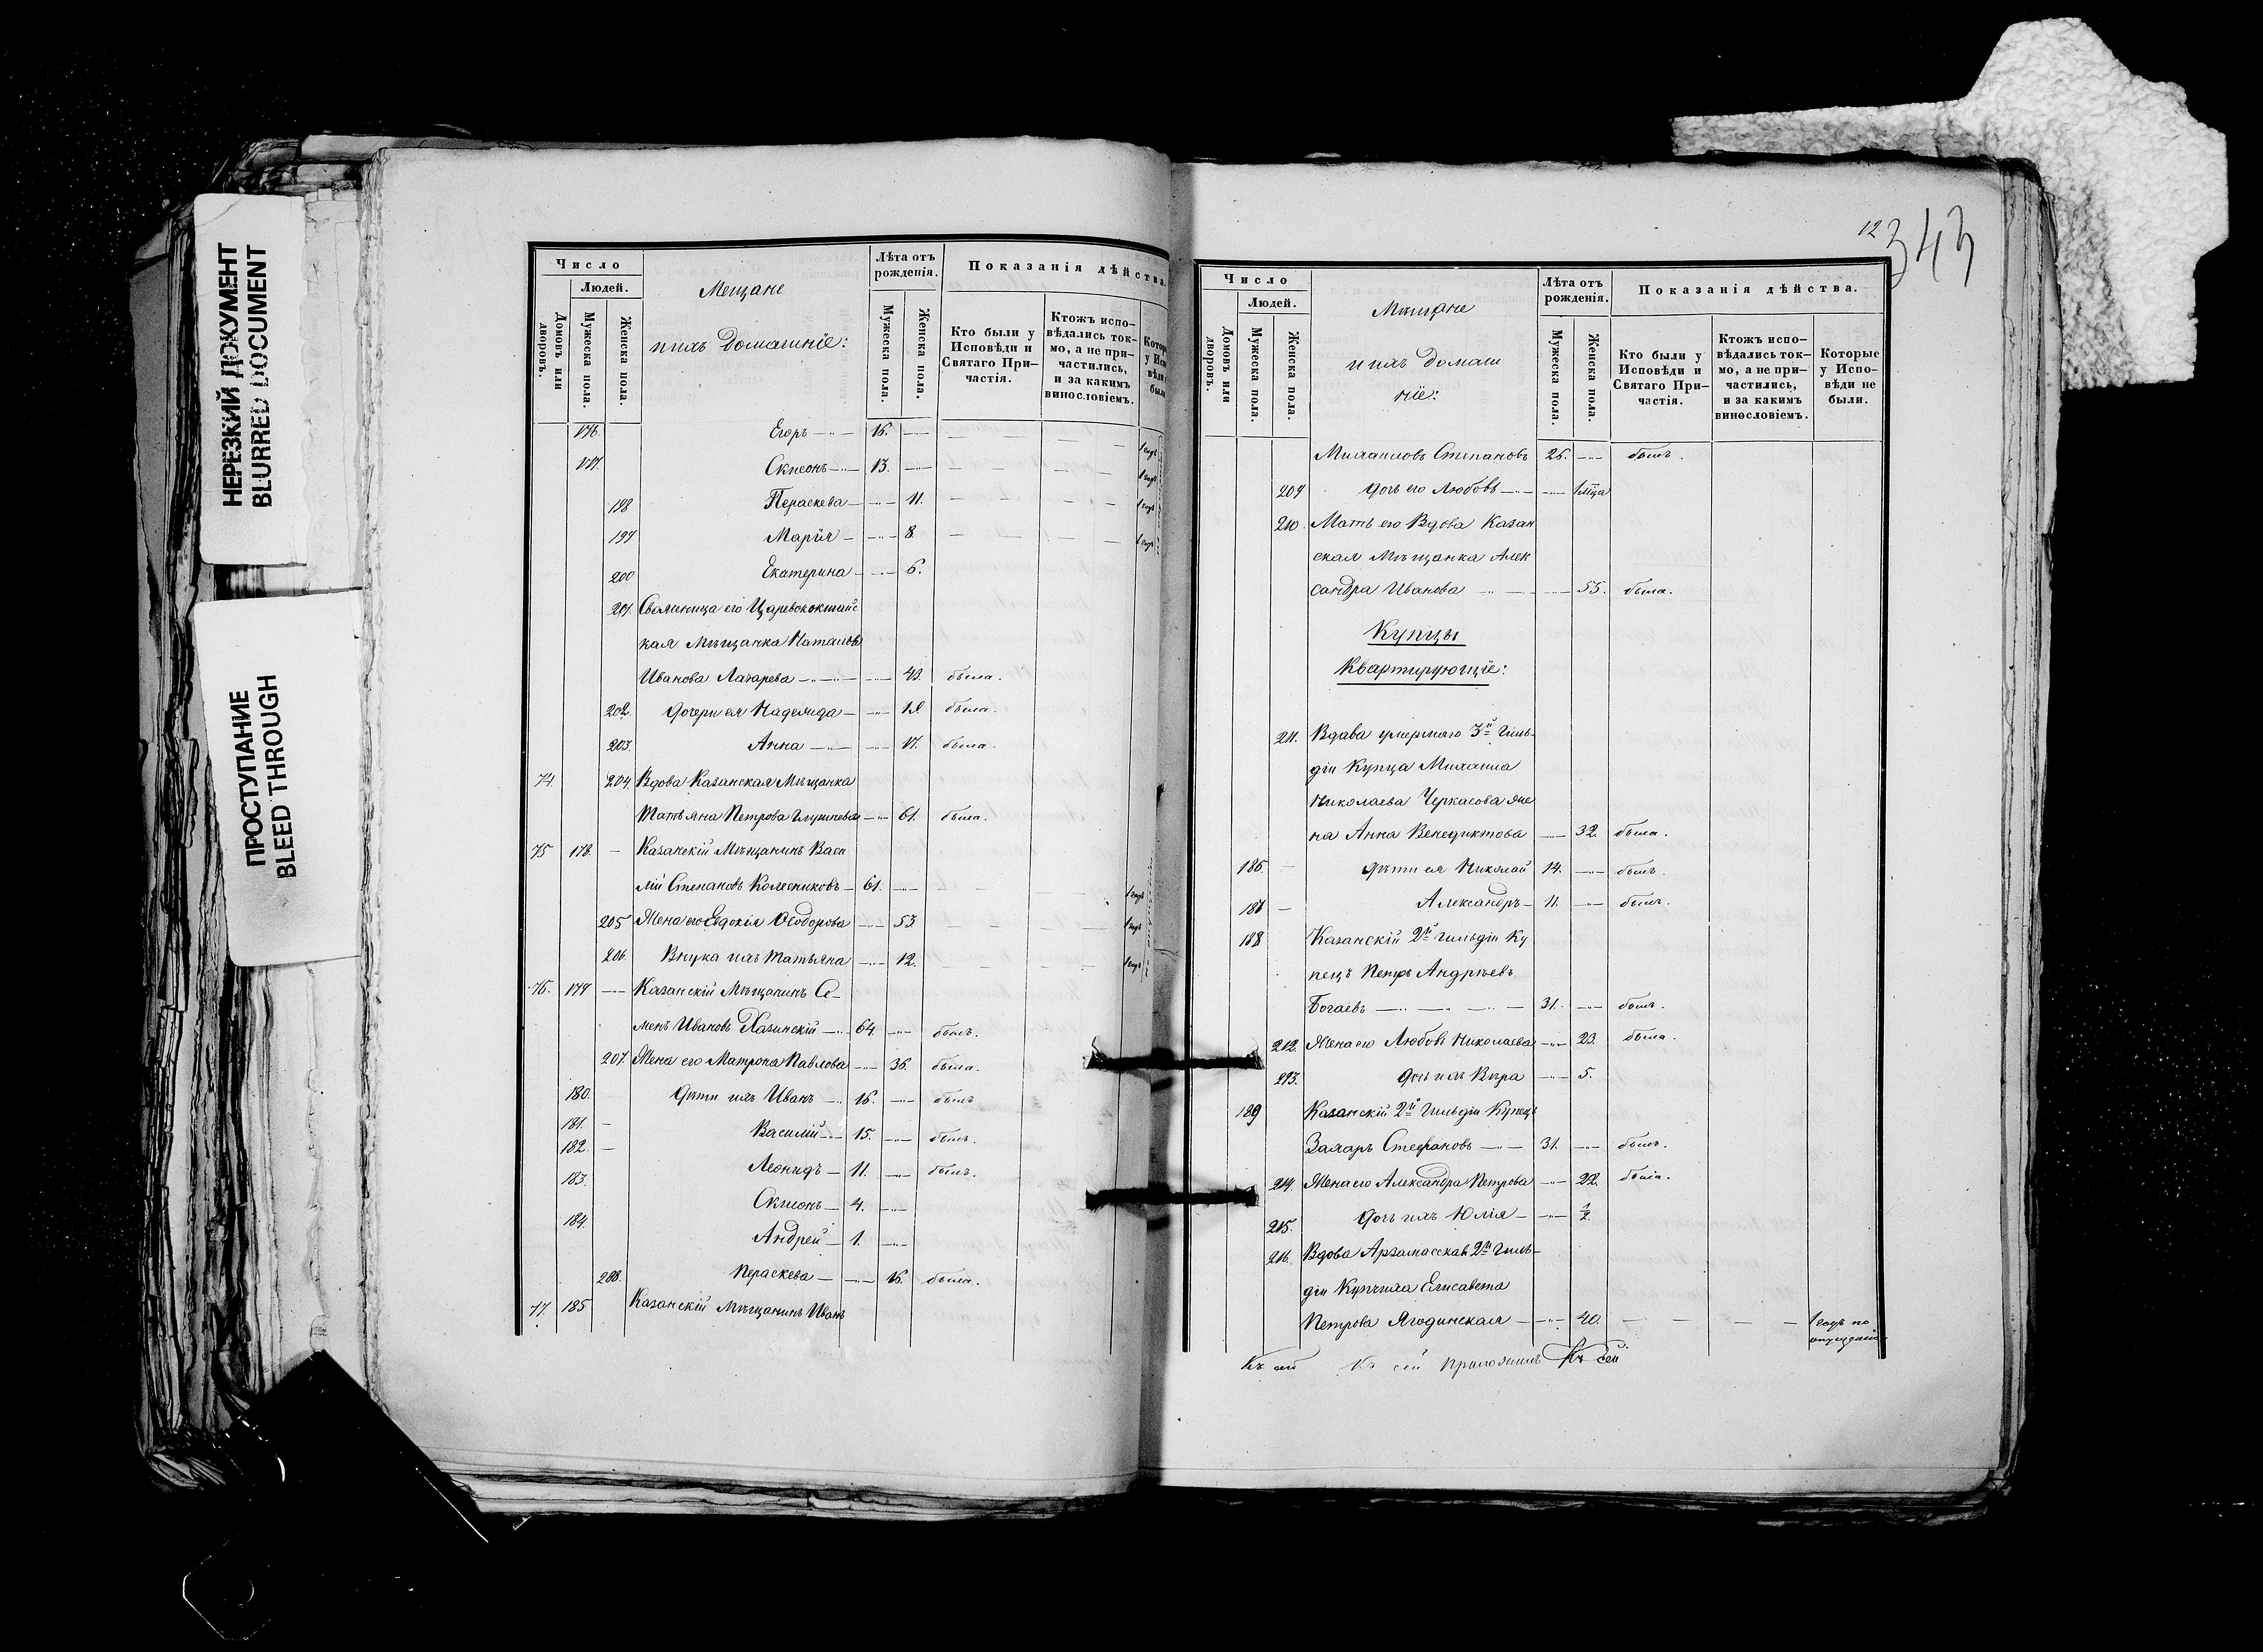 НЕРЕЗКИЙ ДОКУМЕНТ
BLURRED DOCUMENT
ПРОСТУПАНИЕ
BLEED THROUGH
Число
Людей.
Домовъ или дворовъ.
Мужеска пола.
Женска пола.
Мещане
и ихъ домашніе:
Лѣта отъ рожденія.
Мужеска пола.
Женска пола.
Показанія дѣйства.
Кто были у Исповѣди и Святаго Причастія.
Ктожъ исповѣдались токмо, а не причастились, и за какимъ винословіемъ.
Егоръ 16.
Симеонъ 13.
198 Параскева 11.
199 Марія 8.
200 Екатерина 6.
201. Свояченица его Царевококшайс
кая Мѣщанка Наталья
Иванова Лазарева 43. была.
202. Дочери ея Надежда 18. была.
203. Анна 17. была.
74. 204. Вдова Казанская Мѣщанка
Татьяна Петрова 61. была.
75 178. Казанскій Мѣщанинъ Васи
лій Степановъ Колесниковъ 61. 1 годъ
205 Жена его Евдокія Ѳеодорова 53. 1 годъ
206. Внука ихъ Татьяна 12. 1 годъ
76. 179 Казанскій Мѣщанинъ Се-
менъ Ивановъ Хазинскій 64. былъ.
207. Жена его Матрона Павлова 36. была.
180. Дѣти ихъ Иванъ 16. былъ
181. Василій 15. былъ.
182. Леонидъ 11. былъ.
183. Симеонъ 4.
184. Андрей 1.
208. Параскева 16. была.
77. 185 Казанскій Мѣщанинъ Иванъ
12
343
Число
Людей.
Домовъ или дворовъ.
Мужеска пола.
Женска пола.
Мѣщане
и ихъ домаш
ніе:
Лѣта отъ рожденія.
Мужеска пола.
Женска пола.
Показанія дѣйства.
Кто были у Исповѣди и Святаго Причастія.
Ктожъ исповѣдались токмо, а не причастились, и за какимъ винословіемъ.
Которые у Исповѣди не были.
Михаиловъ Степановъ 26. былъ.
209 Дочь его Любовь 1 мца
210. Мать его Вдова Казан
ская Мѣщанка Алек
сандра Иванова 55. была.
Купцы
Квартирующіе:
211. Вдава умершаго 3й Гиль-
діи Купца Михаила
Николаева Черкасова же
на Анна Венедиктова 32. была.
186. Дѣти ея Николай 14. былъ.
187 Александръ 11. былъ.
188 Казанскій 2й Гильдіи Ку
пецъ Петръ Андрѣевъ
Богаевъ 31. былъ.
212. Жена его Любовь Николаева 23. была.
213. Дочь ихъ Вѣра 5.
189 Казанскій 2й Гильдіи Купецъ
Захаръ Стефановъ 31. былъ.
214. Жена его Александра Петрова 22. была.
215. Дочь ихъ Юлія 1/2
216. Вдова Арзамасская 2й Гиль-
діи Купчиха Елисавета
Петрова Ягодинская 40. 1 годъ по
опущенію
Къ сей Къ сей приложилъ Къ сей